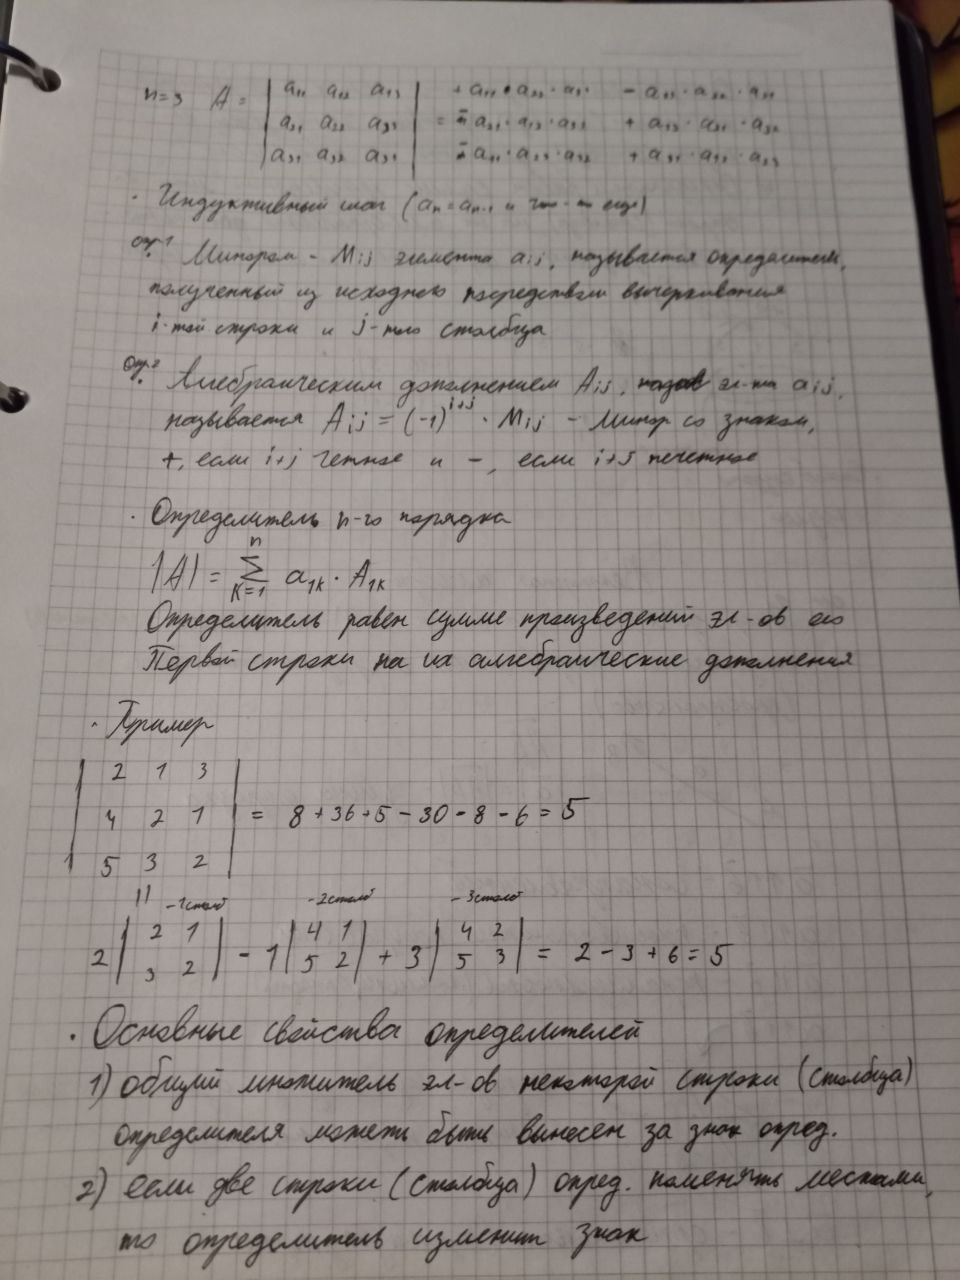 n=3 A = | a₁₁ a₁₂ a₁₃ |
Индуктивный шаг (aₙ = aₙ₋₁ и что-то еще)
опр.1 Минором - Mij элемента aij, называется определитель,
полученный из исходного посредством вычеркивания
i-той строки и j-того столбца
опр.2 Алгебраическим дополнением Aij, эл-та aij,
называется Aij = (-1)^(i+j) · Mij - минор со знаком,
+, если i+j четное и -, если i+j нечетное
· Определитель n-го порядка
|A| = Σ (k=1, n) a₁k · A₁k
Определитель равен сумме произведений эл-ов его
Первой строки на их алгебраические дополнения
· Пример
| 2 1 3 |
| 4 2 1 | = 8 + 36 + 5 - 30 - 8 - 6 = 5
| 5 3 2 |
|| -1столб -2столб -3столб
2 | 2 1 | - 1 | 4 1 | + 3 | 4 2 |
| 3 2 | | 5 2 | | 5 3 | = 2 - 3 + 6 = 5
· Основные свойства определителей
1) общий множитель эл-ов некоторой строки (столбца)
определителя может быть вынесен за знак опред.
2) если две строки (столбца) опред. поменять местами,
то определитель изменит знак